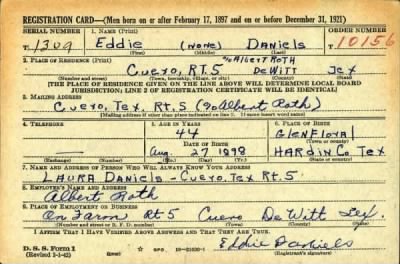 REGISTRATION CARD—(Men born on or after February 17, 1897 and on or before December 31, 1921)
SERIAL NUMBER 1. NAME (Print) ORDER NUMBER
T 1309 Eddie (none) Daniels T 10156
(First) (Middle) (Last)
2. PLACE OF RESIDENCE (Print) % ALBERT ROTH
Cuero, RT. 5 DeWITT Tex
(Number and street) (Town, township, village, or city) (County) (State)
[THE PLACE OF RESIDENCE GIVEN ON THE LINE ABOVE WILL DETERMINE LOCAL BOARD
JURISDICTION; LINE 2 OF REGISTRATION CERTIFICATE WILL BE IDENTICAL]
3. MAILING ADDRESS
Cuero, Tex. Rt. 5 (% Albert Roth)
[Mailing address if other than place indicated on line 2. If same insert word same]
4. TELEPHONE 5. AGE IN YEARS 6. PLACE OF BIRTH
44 GlenFlora
DATE OF BIRTH (Town or county)
Aug. 27 1898 HARdin Co Tex
(Exchange) (Number) (Mo.) (Day) (Yr.) (State or country)
7. NAME AND ADDRESS OF PERSON WHO WILL ALWAYS KNOW YOUR ADDRESS
LAURA DANIELS - Cuero, Tex Rt. 5
8. EMPLOYER'S NAME AND ADDRESS
Albert Roth
9. PLACE OF EMPLOYMENT OR BUSINESS
On Farm Rt 5 Cuero DeWitt Tex.
(Number and street or R. F. D. number) (Town) (County) (State)
I AFFIRM THAT I HAVE VERIFIED ABOVE ANSWERS AND THAT THEY ARE TRUE.
D. S. S. Form 1 GPO
(Revised 2-1-42) Eddie Daniels
(Registrant's signature)